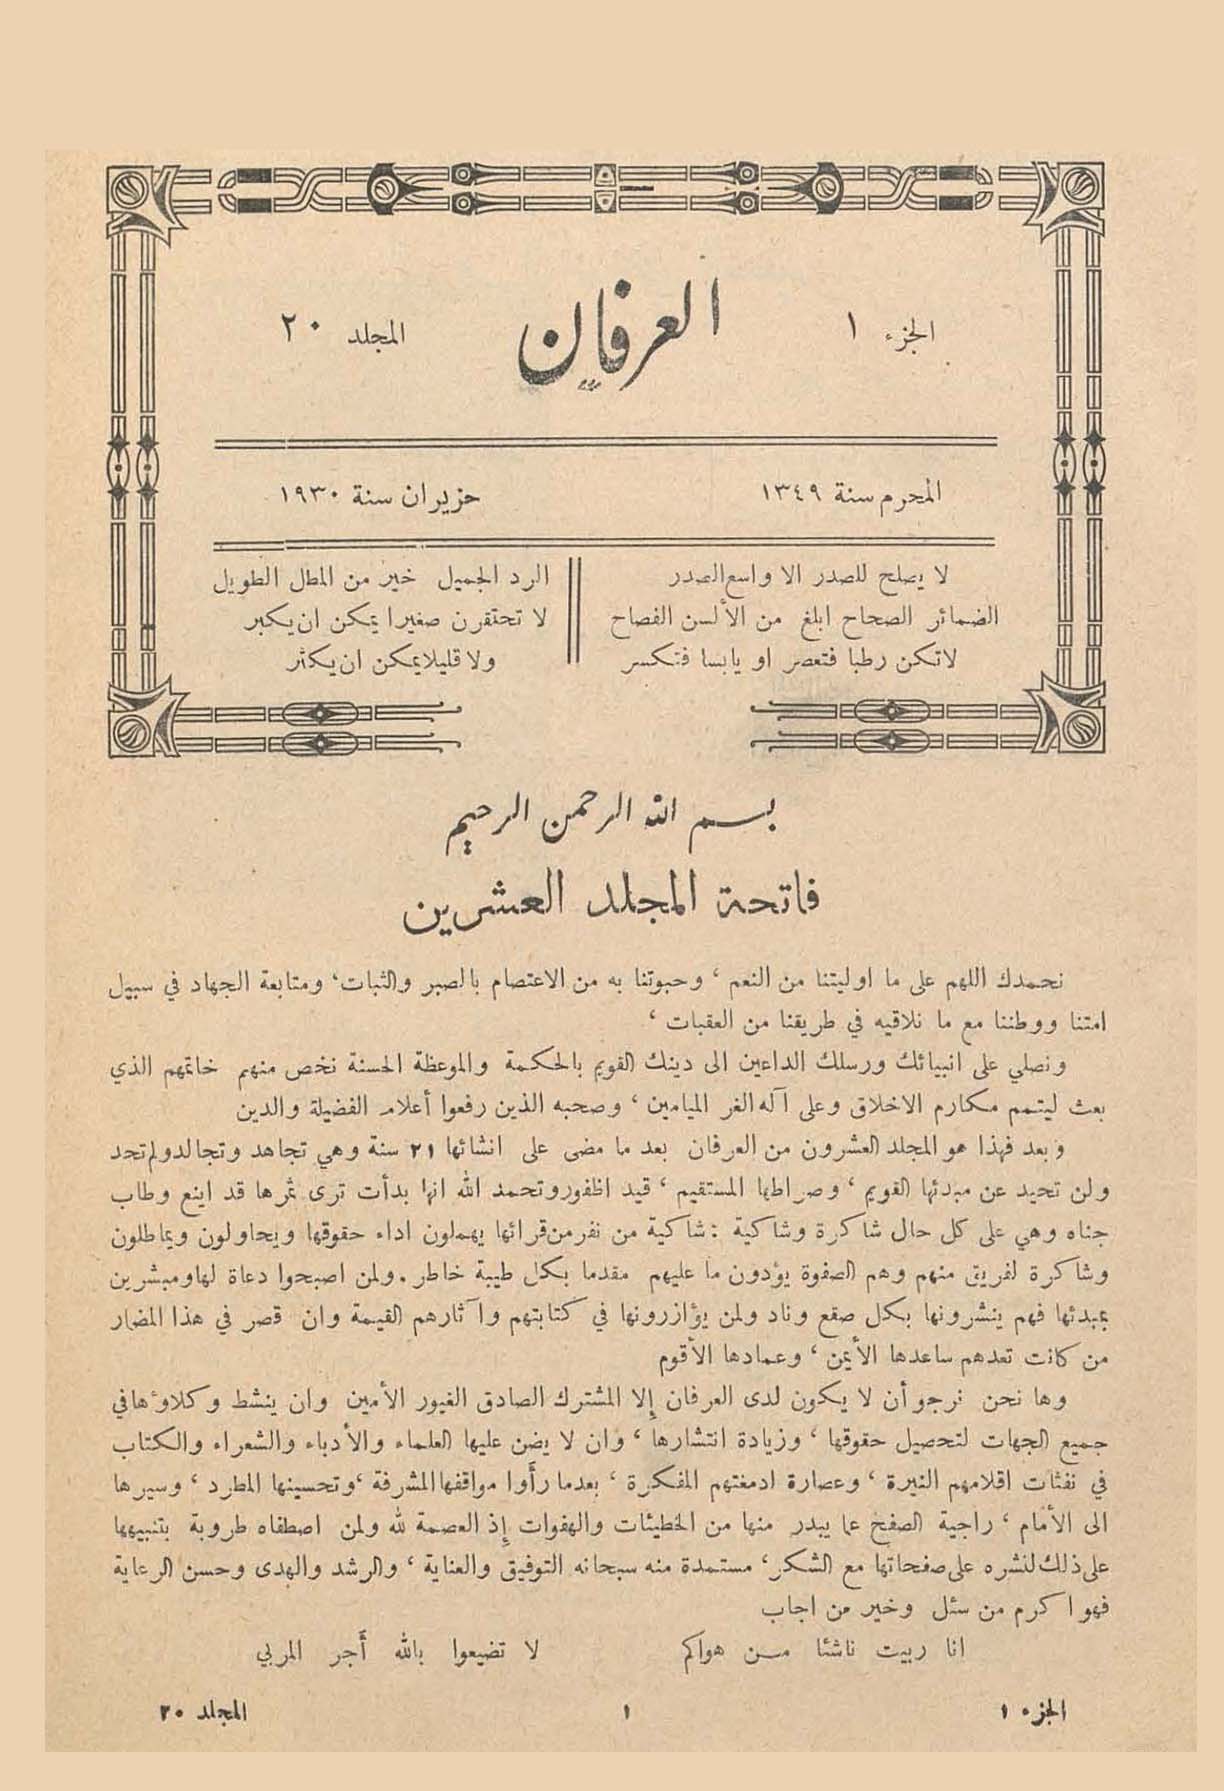 الجزء ١ العرفان المجلد ٢٠
المحرم سنة ١٣٤٩ حزيران سنة ١٩٣٠
لا يصلح للصدر الا واسع الصدر
الضمائر الصحاح ابلغ من الألسن الفصاح
لا تكن رطبا فتعصر او يابسا فتكسر
الرد الجميل خير من المطل الطويل
لا تحتقرن صغيرا يمكن ان يكبر
ولا قليلا يمكن ان يكثر
بسم الله الرحمن الرحيم
فاتحة المجلد العشرين
نحمدك اللهم على ما اوليتنا من النعم ، وحبوتنا به من الاعتصام بالصبر والثبات، ومتابعة الجهاد في سبيل
امتنا ووطننا مع ما نلاقيه في طريقنا من العقبات ،
ونصلي على انبيائك ورسلك الداعين الى دينك القويم بالحكمة والموعظة الحسنة نخص منهم خاتمهم الذي
بعث ليتمم مكارم الاخلاق وعلى آله الغر الميامين ، وصحبه الذين رفعوا أعلام الفضيلة والدين
وبعد فهذا هو المجلد العشرون من العرفان بعد ما مضى على انشائها ٢١ سنة وهي تجاهد وتجالد ولم تحد
ولن تحيد عن مبدئها القويم ، وصراطها المستقيم ، قيد اظفور وتحمد الله انها بدأت ترى ثمرها قد اينع وطاب
جناه وهي على كل حال شاكرة وشاكية : شاكية من نفر من قرائها يهملون اداء حقوقها ويحاولون ويماطلون
وشاكرة لفريق منهم وهم الصفوة يؤدون ما عليهم مقدما بكل طيبة خاطر . ولمن اصبحوا دعاة لها ومبشرين
بمبدئها فهم ينشرونها بكل صقع وناد ولمن يؤازرونها في كتابتهم وآثارهم القيمة وان قصر في هذا المضمار
من كانت تعدهم ساعدها الأيمن ، وعمادها الأقوم
وها نحن نرجو أن لا يكون لدى العرفان إلا المشترك الصادق الغيور الأمين وان ينشط وكلاؤها في
جميع الجهات لتحصيل حقوقها ، وزيادة انتشارها ، وان لا يضن عليها العلماء والأدباء والشعراء والكتاب
في نفثات اقلامهم النيرة ، وعصارة ادمغتهم المفكرة ، بعدما رأوا مواقفها المشرفة ،وتحسينها المطرد ، وسيرها
الى الأمام ، راجية الصفح عما يبدر منها من الخطيئات والهفوات إذ العصمة لله ولمن اصطفاه طروبة بتنبيهها
على ذلك لنشره على صفحاتها مع الشكر، مستمدة منه سبحانه التوفيق والعناية ، والرشد والهدى وحسن الرعاية
فهو اكرم من سئل وخير من اجاب
انا ربيت ناشئا من هواكم لا تضيعوا بالله أجر المربي
الجزء ١ ١ المجلد ٢٠